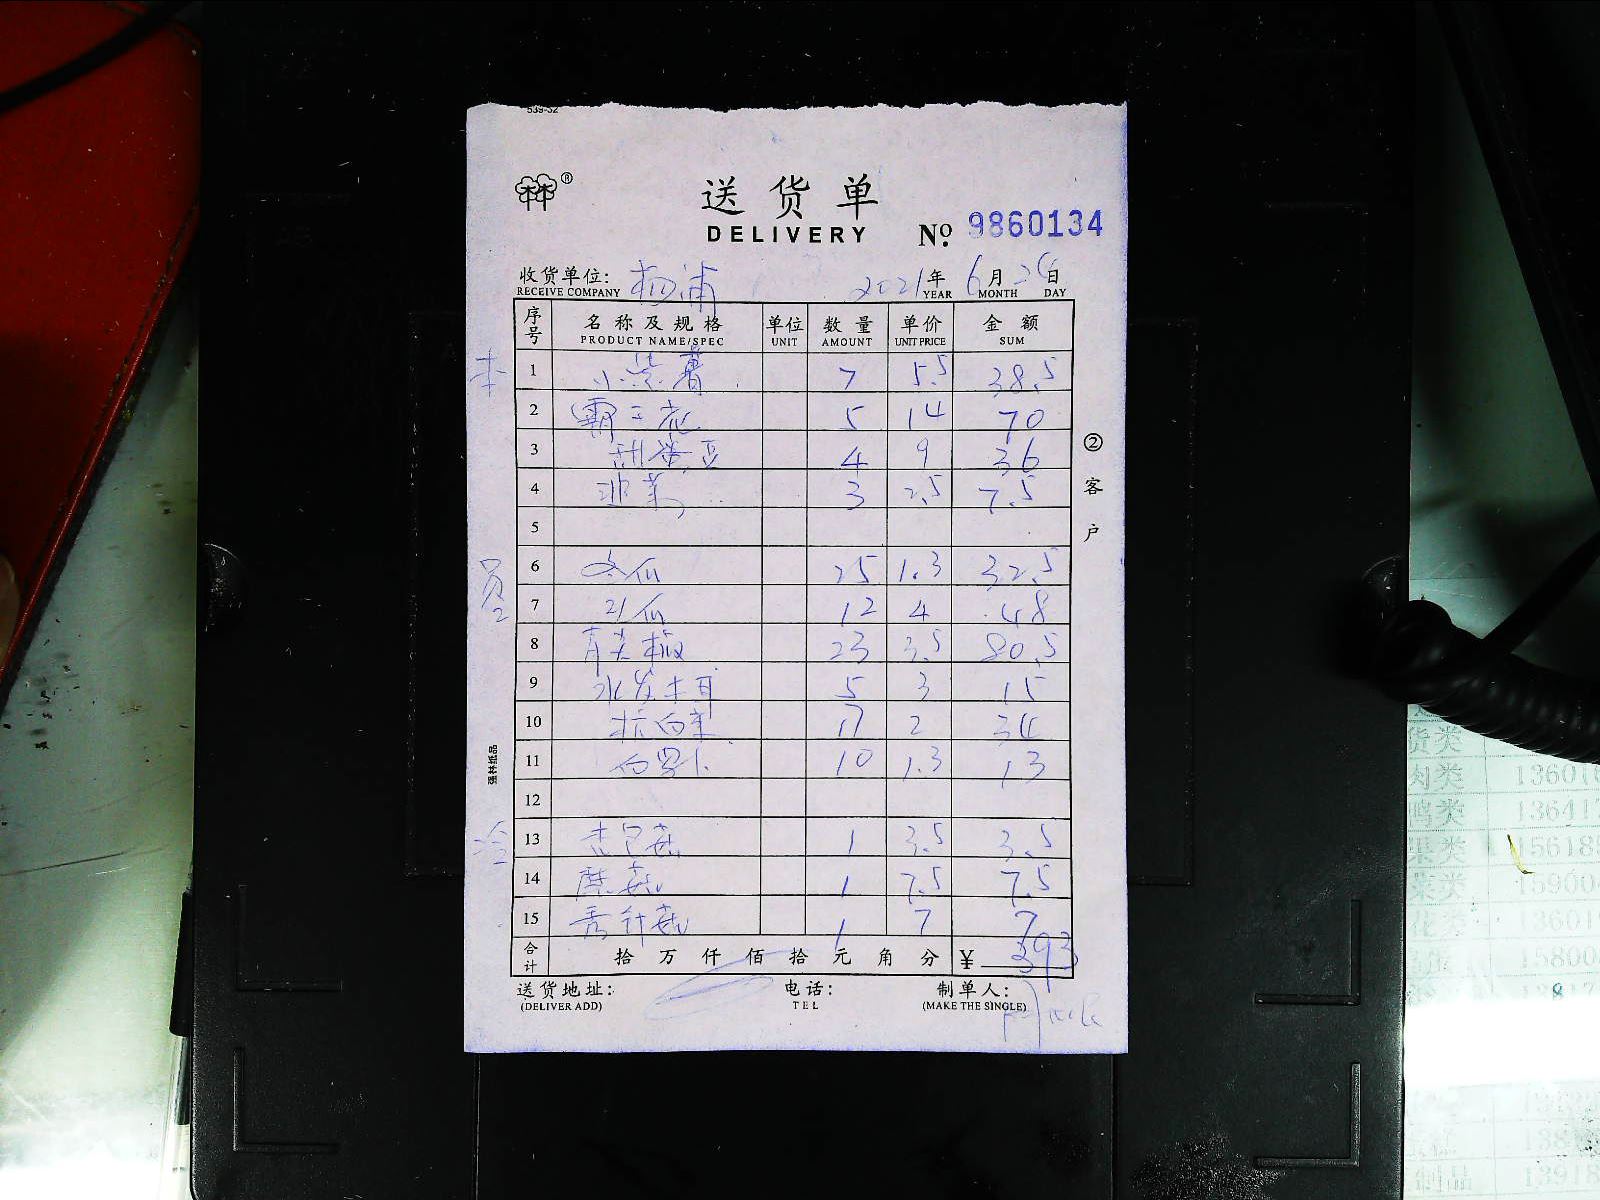 539-32
®
送货单
DELIVERY
Nº. 9860134
收货单位: 杨浦 2021年 6月 日
RECEIVE COMPANY YEAR MONTH DAY
序号 名称及规格 单位 数量 单价 金额
PRODUCT NAME/SPEC UNIT AMOUNT UNIT PRICE SUM
1 小紫薯 7 5.5 38.5
2 霸王花 5 14 70
3 甜蜜豆 4 9 36
4 3 2.5 7.5
5
6 冬瓜 25 1.3 32.5
员
7 12 4 48
8 青尖椒 23 3.5 80.5
9 水发木耳 5 3 15
10 杭白菜 17 2 34
11 白罗卜 10 1.3 13
12
冷
13 杏包菇 1 3.5 3.5
14 蘑菇 1 7.5 7.5
15 秀针菇 1 7 7
合计 拾万仟佰拾元角分 ¥ 393
送货地址: 电话: 制单人:
(DELIVER ADD) TEL (MAKE THE SINGLE)
② 客户
强林纸品
货类
肉类 13601
鸭类 13641
类 15618
菜类 15900
1360
15800